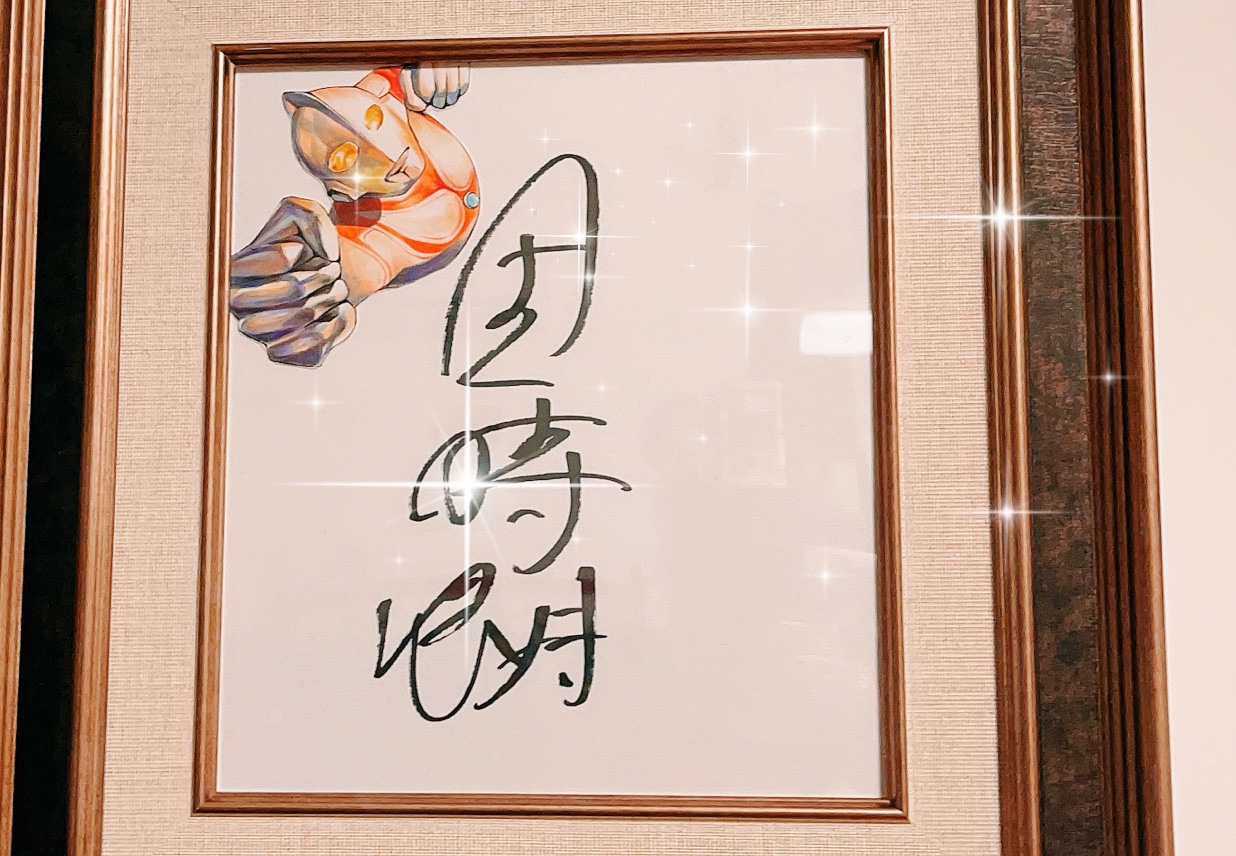 団時朗